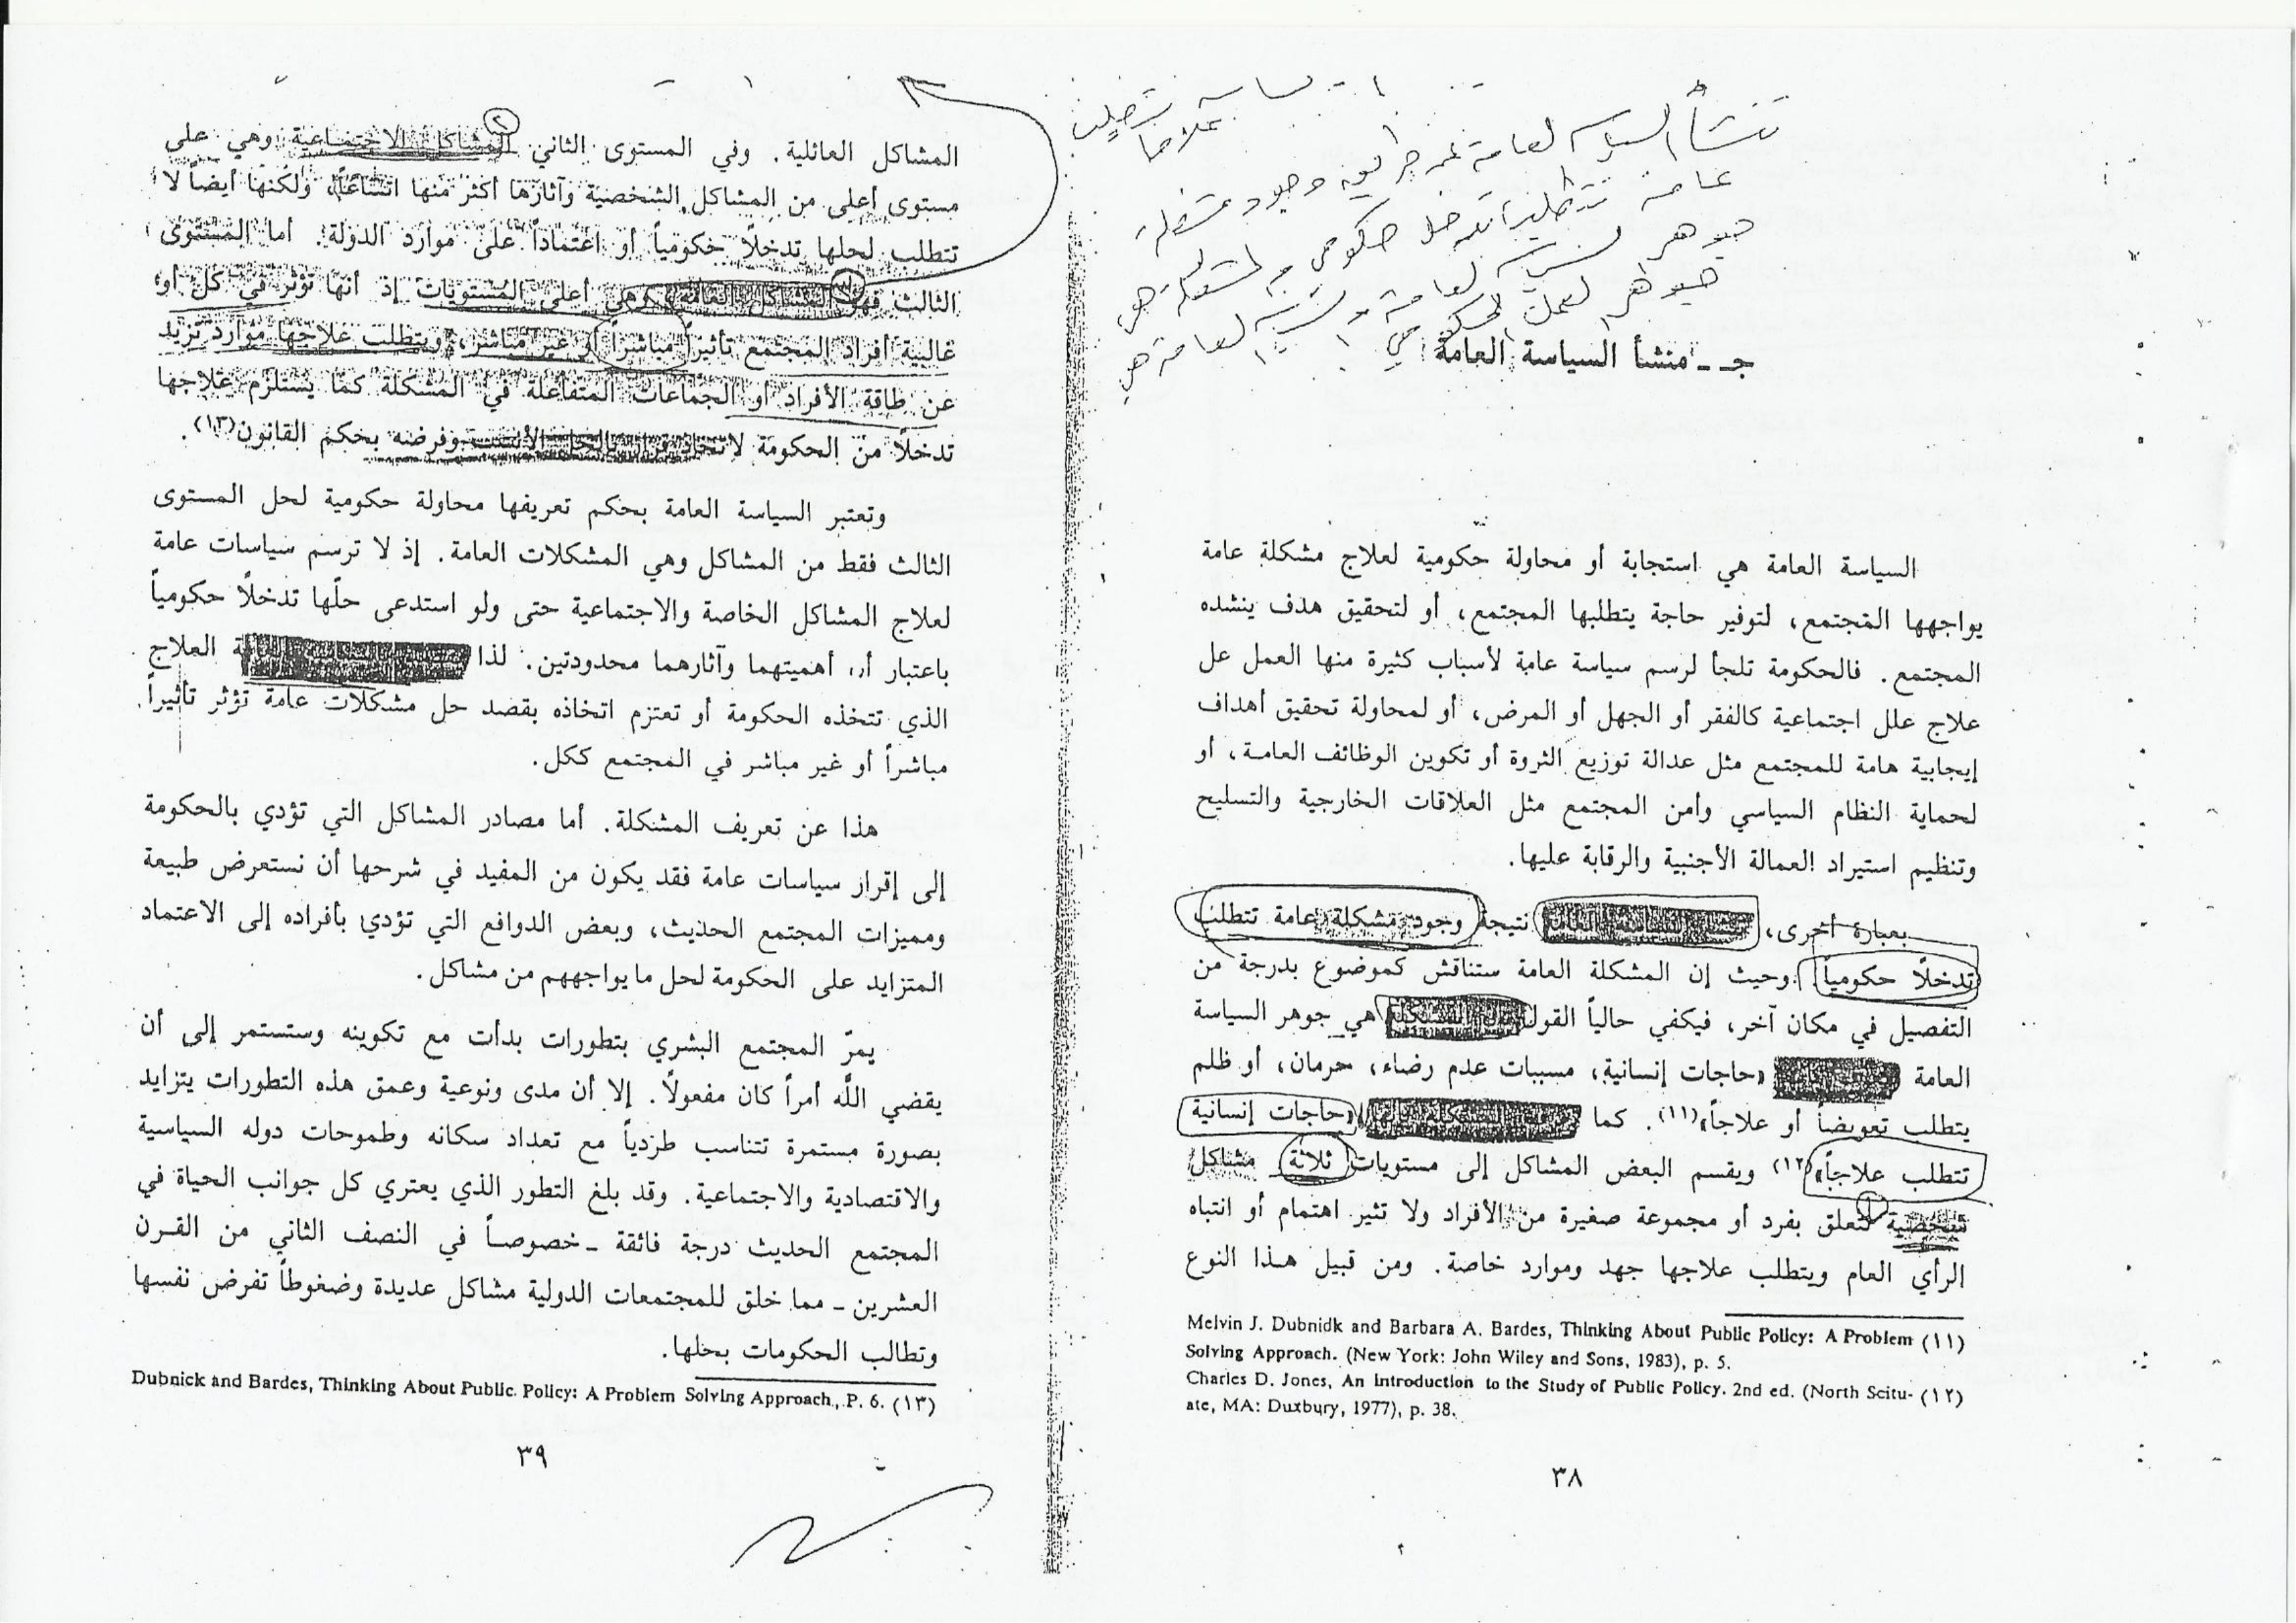 تنشأ السياسة العامة عن طريق وجود مشكلة
عامة تتطلب تدخل حكومي والمشكلة هي
جوهر السياسة العامة والسياسة العامة هي
جوهر العمل الحكومي
جـ ـ منشأ السياسة العامة
السياسة العامة هي استجابة أو محاولة حكومية لعلاج مشكلة عامة
يواجهها المجتمع، لتوفير حاجة يتطلبها المجتمع، أو لتحقيق هدف ينشده
المجتمع. فالحكومة تلجأ لرسم سياسة عامة لأسباب كثيرة منها العمل عل
علاج علل اجتماعية كالفقر أو الجهل أو المرض، أو لمحاولة تحقيق أهداف
إيجابية هامة للمجتمع مثل عدالة توزيع الثروة أو تكوين الوظائف العامة، أو
لحماية النظام السياسي وأمن المجتمع مثل العلاقات الخارجية والتسليح
وتنظيم استيراد العمالة الأجنبية والرقابة عليها.
بعبارة أخرى، تنشأ السياسة العامة نتيجة وجود مشكلة عامة تتطلب
تدخلًا حكومياً. وحيث إن المشكلة العامة ستناقش كموضوع بدرجة من
التفصيل في مكان آخر، فيكفي حالياً القول المشكلة هي جوهر السياسة
العامة «حاجات إنسانية، مسببات عدم رضاء، حرمان، أو ظلم
يتطلب تعويضاً أو علاجاً»(١١). كما المشكلة بأنها «حاجات إنسانية
تتطلب علاجاً»(١٢) ويقسم البعض المشاكل إلى مستويات ثلاثة مشاكل
شخصية تتعلق بفرد أو مجموعة صغيرة من الأفراد ولا تثير اهتمام أو انتباه
الرأي العام ويتطلب علاجها جهد وموارد خاصة. ومن قبيل هذا النوع
Melvin J. Dubnidk and Barbara A. Bardes, Thinking About Public Policy: A Problem (١١)
Solving Approach. (New York: John Wiley and Sons, 1983), p. 5.
Charles D. Jones, An Introduction to the Study of Public Policy. 2nd ed. (North Scitu- (١٢)
ate, MA: Duxbury, 1977), p. 38.
٣٨
المشاكل العائلية. وفي المستوى الثاني المشاكل الاجتماعية وهي على
مستوى أعلى من المشاكل الشخصية وآثارها أكثر منها اتساعاً، ولكنها أيضاً لا
تتطلب لحلها تدخلًا حكومياً أو اعتماداً على موارد الدولة. أما المستوى
الثالث فهو المشاكل العامة وهي أعلى المستويات إذ أنها تؤثر في كل أو
غالبية أفراد المجتمع تأثيراً مباشراً أو غير مباشر، ويتطلب علاجها موارد تزيد
عن طاقة الأفراد أو الجماعات المتفاعلة في المشكلة كما يستلزم علاجها
تدخلًا من الحكومة لاتخاذ قرار بالحل الأنسب وفرضه بحكم القانون(١٣).
وتعتبر السياسة العامة بحكم تعريفها محاولة حكومية لحل المستوى
الثالث فقط من المشاكل وهي المشكلات العامة. إذ لا ترسم سياسات عامة
لعلاج المشاكل الخاصة والاجتماعية حتى ولو استدعى حلّها تدخلًا حكومياً
باعتبار أن أهميتهما وآثارهما محدودتين. لذا العلاج
الذي تتخذه الحكومة أو تعتزم اتخاذه بقصد حل مشكلات عامة تؤثر تأثيراً
مباشراً أو غير مباشر في المجتمع ككل.
هذا عن تعريف المشكلة. أما مصادر المشاكل التي تؤدي بالحكومة
إلى إقرار سياسات عامة فقد يكون من المفيد في شرحها أن نستعرض طبيعة
ومميزات المجتمع الحديث، وبعض الدوافع التي تؤدي بأفراده إلى الاعتماد
المتزايد على الحكومة لحل ما يواجههم من مشاكل.
يمرّ المجتمع البشري بتطورات بدأت مع تكوينه وستستمر إلى أن
يقضي الله أمراً كان مفعولًا. إلا أن مدى ونوعية وعمق هذه التطورات يتزايد
بصورة مستمرة تتناسب طردياً مع تعداد سكانه وطموحات دوله السياسية
والاقتصادية والاجتماعية. وقد بلغ التطور الذي يعتري كل جوانب الحياة في
المجتمع الحديث درجة فائقة ـ خصوصاً في النصف الثاني من القرن
العشرين ـ مما خلق للمجتمعات الدولية مشاكل عديدة وضغوطاً تفرض نفسها
وتطالب الحكومات بحلها.
Dubnick and Bardes, Thinking About Public Policy: A Problem Solving Approach, P. 6. (١٣)
٣٩